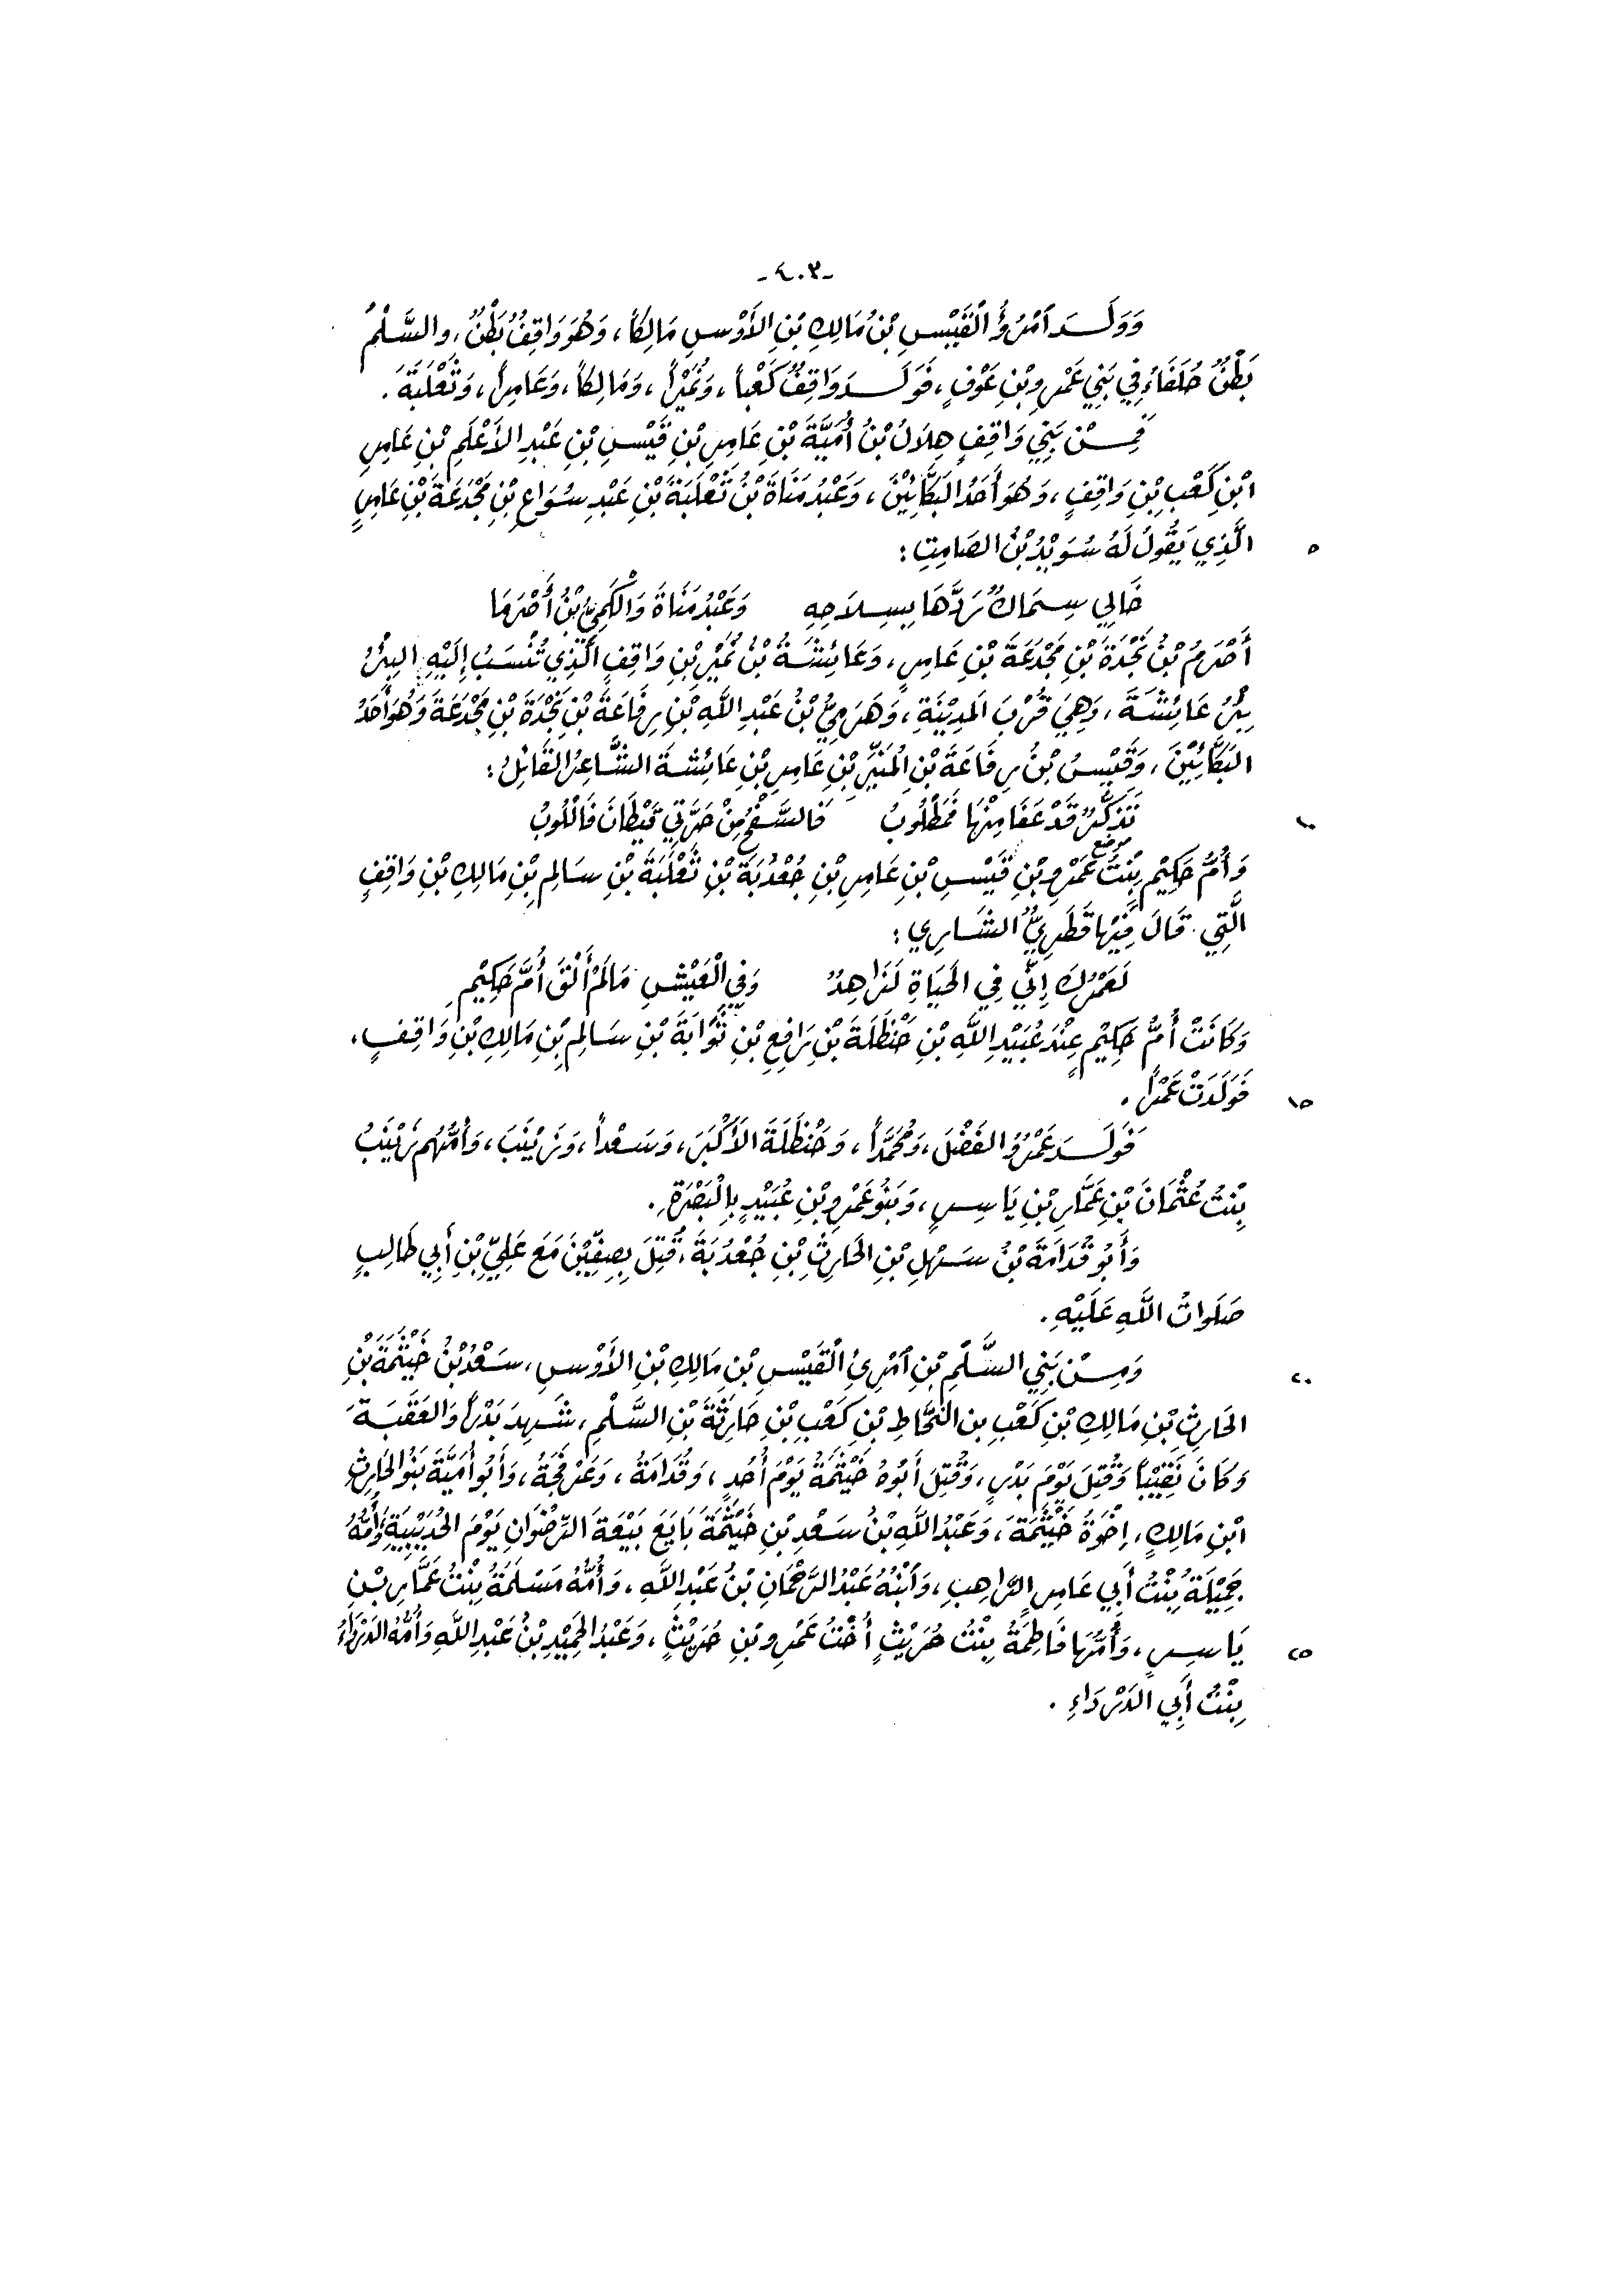 -٤٠٣-
وَوَلَــدَ ٱمْرُؤُ ٱلْقَيْسِ بْنُ مَالِكِ بْنِ الأَوْسِ مَالِكاً، وَهُوَ وَاقِفُ بَطْنٌ، والسَّلْمُ
بَطْنٌ حُلَفَاءُ فِي بَنِي عَمْرِو بْنِ عَوْفٍ، فَوَلَــدَ وَاقِفُ كَعْباً، وَنُمَيْراً، وَمَالِكاً، وَعَامِراً، وَثَعْلَبَةَ.
فَمِــنْ بَنِي وَاقِفٍ هِلَالُ بْنُ أُمَيَّةَ بْنِ عَامِرِ بْنِ قَيْسِ بْنِ عَبْدِ الأَعْلَمِ بْنِ عَامِرِ
ابْنِ كَعْبِ بْنِ وَاقِفٍ، وَهُوَ أَحَدُ البَكَّائِيْنَ، وَعَبْدُ مَنَاةَ بْنُ ثَعْلَبَةَ بْنِ عَبْدِ سُوَاعِ بْنِ مَجْدَعَةَ بْنِ عَامِرٍ
الَّذِي يَقُولُ لَهُ سُوَيْدُ بْنُ الصَامِتِ: ٥
خَالِي سِمَاكٌ رَدَّهَا بِسِلاَحِهِ وَعَبْدُ مَنَاةَ وَالْكَمِيُّ بْنُ أَصْرَمَا
أَصْرَمُ بْنُ نَجْدَةَ بْنِ مَجْدَعَةَ بْنِ عَامِرٍ، وَعَائِشَةُ بْنُ نُمَيْرِ بْنِ وَاقِفٍ الَّذِي تُنْسَبُ إِلَيْهِ البِئْرُ
بِئْرُ عَائِشَةَ، وَهِيَ قُرْبَ المَدِيْنَةِ، وَهَرَمِيُّ بْنُ عَبْدِ اللَّهِ بْنِ رِفَاعَةَ بْنِ نَجْدَةَ بْنِ مَجْدَعَةَ وَهُوَ أَحَدُ
البَكَّائِيْنَ، وَقَيْسُ بْنُ رِفَاعَةَ بْنِ المُنَيِّرِ بْنِ عَامِرِ بْنِ عَائِشَةَ الشَّاعِرُ القَائِلُ:
تَذَكَّرٌ قَدْ عَفَا مِنْهَا فَمَطْلُوبُ فَالسَّفْحُ مِنْ حَرَّتَي قَيْطَانَ فَاللُّوبُ ١٠
موضع
وَأُمُّ حَكِيْمٍ بِنْتُ عَمْرِو بْنِ قَيْسِ بْنِ عَامِرِ بْنِ جُعْدُبَةَ بْنِ ثَعْلَبَةَ بْنِ سَالِمِ بْنِ مَالِكِ بْنِ وَاقِفٍ
الَّتِي قَالَ فِيْهَا قَطَرِيُّ الشَارِي:
لَعَمْرُكَ إِنِّي فِي الحَيَاةِ لَزَاهِدٌ وَفِي الْعَيْشِ مَا لَمْ أَلْقَ أُمَّ حَكِيْمِ
وَكَانَتْ أُمُّ حَكِيْمٍ عِنْدَ عُبَيْدِ اللَّهِ بْنِ حَنْظَلَةَ بْنِ رَافِعِ بْنِ ثَوَابَةَ بْنِ سَالِمِ بْنِ مَالِكِ بْنِ وَاقِفٍ،
فَوَلَدَتْ عَمْراً. ١٥
فَوَلَــدَ عَمْرٌو الفَضْلَ، وَمُحَمَّداً، وَحَنْظَلَةَ الأَكْبَرَ، وَسَعْداً، وَزَيْنَبَ، وَأُمُّهُم زَيْنَبُ
بِنْتُ عُثْمَانَ بْنِ عَمَّارِ بْنِ يَاسِرٍ، وَبَنُو عَمْرِو بْنِ عُبَيْدٍ بِالْبَصْرَةِ.
وَأَبُو قُدَامَةَ بْنُ سَهْلِ بْنِ الحَارِثِ بْنِ جُعْدُبَةَ، قُتِلَ بِصِفِّيْنَ مَعَ عَلِيِّ بْنِ أَبِي طَالِبٍ
صَلَوَاتُ اللَّهِ عَلَيْهِ.
وَمِــنْ بَنِي السَّلْمِ بْنِ ٱمْرِئِ ٱلْقَيْسِ بْنِ مَالِكِ بْنِ الأَوْسِ، سَعْدُ بْنُ خَيْثَمَةَ بْنِ ٢٠
الحَارِثِ بْنِ مَالِكِ بْنِ كَعْبِ بن النَّحَّاطِ بْنِ كَعْبِ بْنِ حَارِثَةَ بْنِ السَّلْمِ، شَهِدَ بَدْراً وَالعَقَبَةَ
وَكَانَ نَقِيْباً وَقُتِلَ يَوْمَ بَدْرٍ، وَقُتِلَ أَبُوهُ خَيْثَمَةُ يَوْمَ أُحُدٍ، وَقُدَامَةُ، وَعَرْفَجَةُ، وَأَبُو أُمَيَّةَ بَنُو الحَارِثِ
ابْنِ مَالِكٍ، إِخْوَةُ خَيْثَمَةَ، وَعَبْدُ اللَّهِ بْنُ سَعْدِ بْنِ خَيْثَمَةَ بَايَعَ بَيْعَةَ الرِّضْوَانِ يَوْمَ الحُدَيْبِيَةِ، وَأُمُّهُ
جَمِيْلَةُ بِنْتُ أَبِي عَامِرٍ الرَّاهِبِ، وَٱبْنُهُ عَبْدُ الرَّحْمَانِ بْنُ عَبْدِ اللَّهِ، وَأُمُّهُ مَسْلَمَةُ بِنْتُ عَمَّارِ بْنِ
يَاسِرٍ، وَأُمُّهَا فَاطِمَةُ بِنْتُ حُرَيْثٍ أُخْتُ عَمْرِو بْنِ حُرَيْثٍ، وَعَبْدُ الحَمِيْدِ بْنُ عَبْدِ اللَّهِ وَأُمُّهُ الدَرْدَاءُ ٢٥
بِنْتُ أَبِي الدَرْدَاءِ.